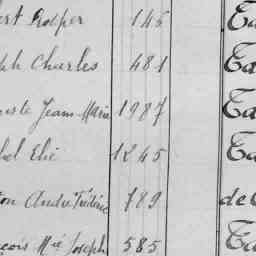 ert Prosper 145 Ta
ph Charles 481 Ta
Jean Marie 1987 Ta
el Elie 1245 Ta
on André Frédéric 789 de
çois Mie Joseph 585 Ta